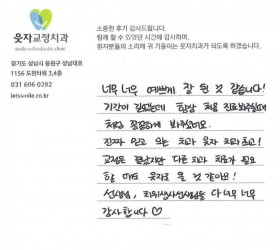 웃자교정치과
smile orthodontic clinic
경기도 성남시 중원구 성남대로
1156 도원타워 3,4층
031 606 0282
letssmile.co.kr
소중한 후기 감사드립니다.
함께 할 수 있었던 시간에 감사하며,
환자분들의 소리에 귀 기울이는 웃자치과가 되도록 하겠습니다.
너무 너무 예쁘게 잘 된 것 같습니다!
기간이 길었는데 항상 처음 진료봐주실때
처럼 꼼꼼하게 봐주셨어요.
진짜 믿고 쓰는 치과 웃자 치과 최고!
교정은 끝났지만 다른 치과 치료가 필요
할 때도 웃자로 올 것 같아요!
선생님, 치위생사선생님들 다 너무 너무
감사합니다 ♡